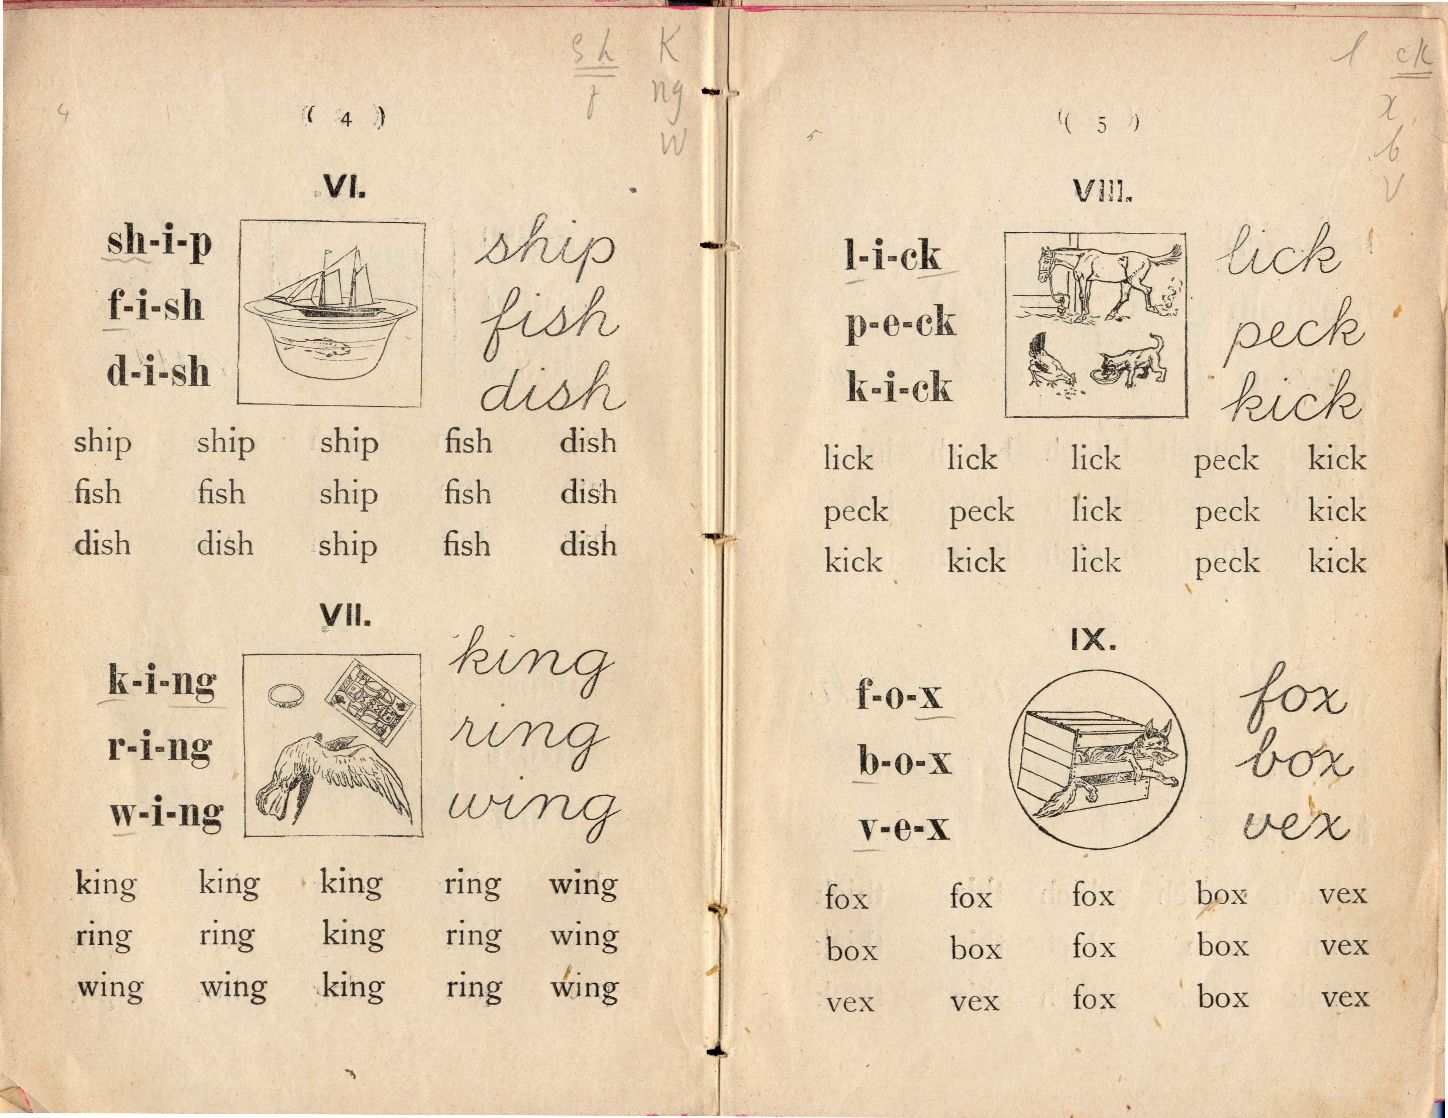 sh K
f ng
w
4
( 4 )
VI.
sh-i-p ship
f-i-sh fish
d-i-sh dish
ship ship ship fish dish
fish fish ship fish dish
dish dish ship fish dish
VII.
k-i-ng king
r-i-ng ring
w-i-ng wing
king king king ring wing
ring ring king ring wing
wing wing king ring wing
l ck
x
b
v
5
( 5 )
VIII.
l-i-ck lick
p-e-ck peck
k-i-ck kick
lick lick lick peck kick
peck peck lick peck kick
kick kick lick peck kick
IX.
f-o-x fox
b-o-x box
v-e-x vex
fox fox fox box vex
box box fox box vex
vex vex fox box vex